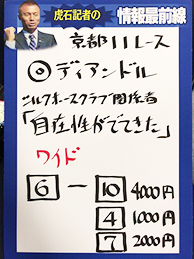 虎石記者の
情報最前線
京都11レース
◎ディアンドル
シルクホースクラブ関係者
「自在性がでてきた」
ワイド
6 ー 10 4000円
4 1000円
7 2000円